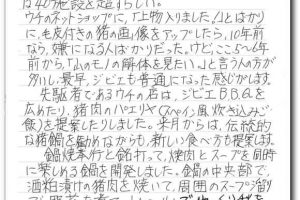 は40施設を超すらしい。
ウチのネットショップに、「上物入りました!」とばかり
に、毛皮付きの猪の画像をアップしたら、10年前
なら、嫌になる人ばかりだった。けど、ここ5〜6年
前から「山のモノの解体を見たい。」と言う方の方が
多いし、最早、ジビエも普通になった感じがします。
先駆者であるウチの店は、ジビエB.B.Qを
広めたり、猪肉のパエリヤ(スペイン風炊き込みご
飯)を提案したりしました。来月からは、伝統的
な猪鍋を勧めながらも、新しい食べ方も提案します。
鍋焼奉行と銘打って、焼肉とスープを同時
に楽しめる鍋を開発しました。鍋の中央部で、
酒粕漬けの猪肉を焼いて、周囲のスープ溜り